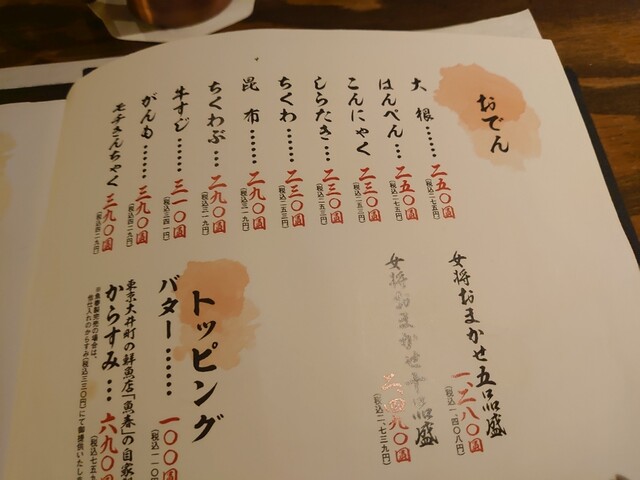 おでん
大根……二五〇圓
(税込二七五円)
はんぺん…二五〇圓
(税込二七五円)
こんにゃく 二三〇圓
(税込二五三円)
しらたき…二三〇圓
(税込二五三円)
ちくわ……二三〇圓
(税込二五三円)
昆布……二九〇圓
(税込三一九円)
ちくわぶ…二九〇圓
(税込三一九円)
牛すじ……三一〇圓
(税込三四一円)
がんも……三九〇圓
(税込四二九円)
モチきんちゃく 三九〇圓
(税込四二九円)
女将おまかせ五品盛
一、二八〇圓
(税込一、四〇八円)
女将おまかせ十品盛
二、四九〇圓
(税込二、七三九円)
トッピング
バター……一〇〇圓
(税込一一〇円)
東京大井町の鮮魚店「魚春」の自家
からすみ…六九〇圓
(税込七五九
※魚春製完売の場合は、
他仕入れのからすみ(税込三三〇円)にて御提供いたしま